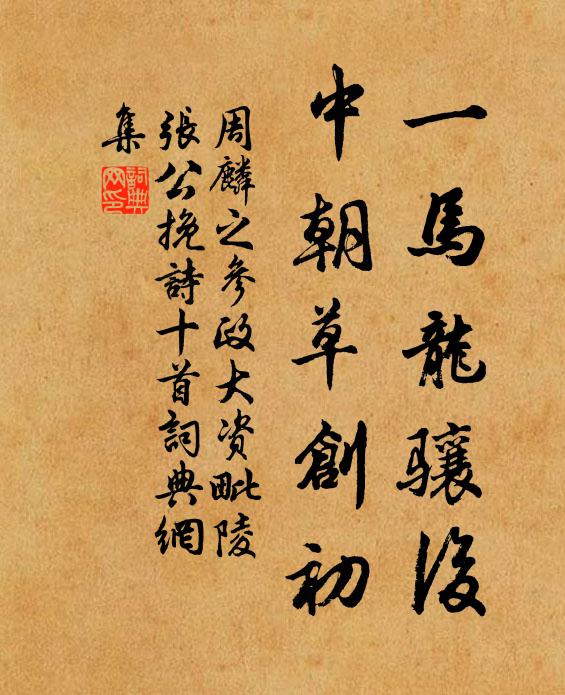 一馬龍驤後
中朝草創初
周麟之參政大资毗陵
張公挽詩十首詞典網
集
詞典网印